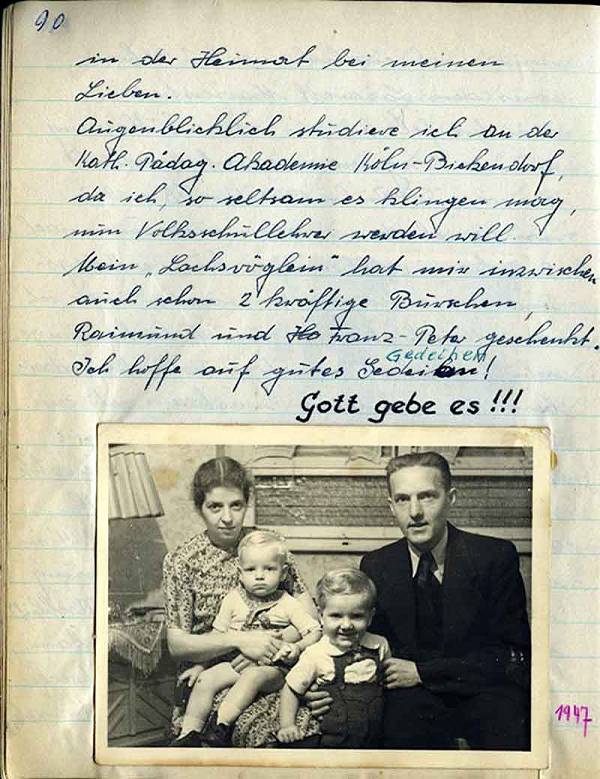 90
in der Heimat bei meinen
Lieben.
Augenblicklich studiere ich an der
Kath. Pädag. Akademie Köln-Bickendorf,
da ich, so seltsam es klingen mag,
nun Volksschullehrer werden will.
Mein „Lachsvöglein" hat mir inzwischen
auch schon 2 kräftige Burschen,
Raimund und Franz-Peter geschenkt.
Gedeihen
Ich hoffe auf gutes !
Gott gebe es !!!
1947